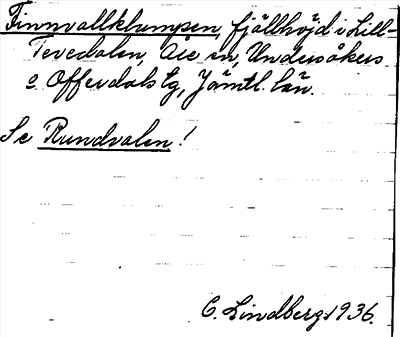 Finnvallklumpen, fjällhöjd i Lill-
Tevedalen, Åre sn, Undersåkers
o Offerdals tg, Jämtl. län.
Se Rundvalen!
C. Lindberg 1936.